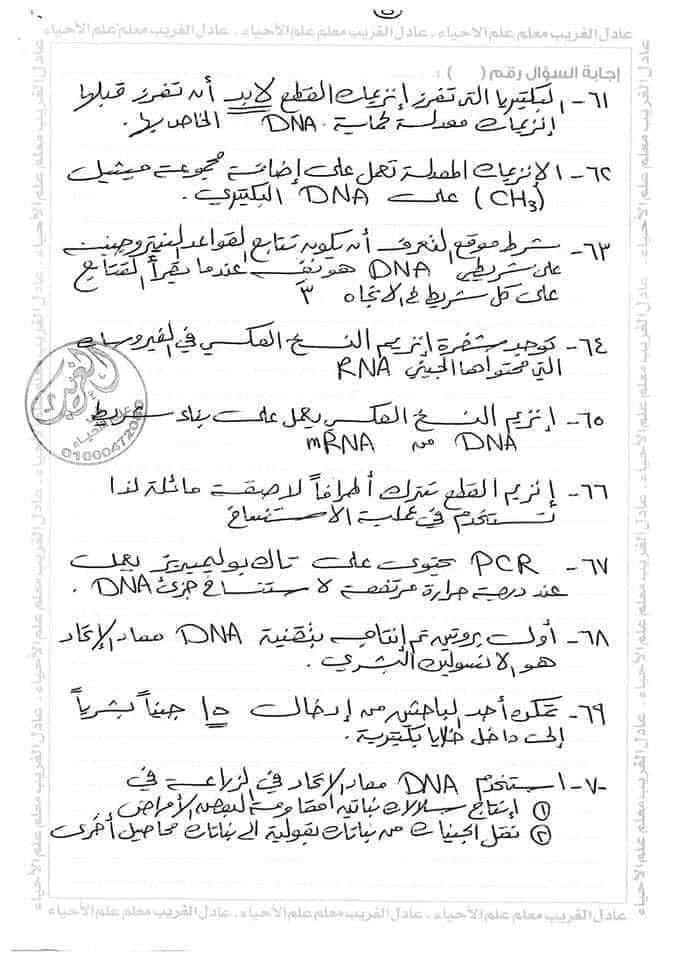 عادل الغريب معلم علم الأحياء . عادل الغريب معلم علم الأحياء . عادل الغريب معلم علم الأحياء
إجابة السؤال رقم ( ) :
٦١- البكتيريا التى تفرز إنزيمات القطع لابد أن تفرز قبلها
إنزيمات معدلة لحماية DNA الخاص بها.
٦٢- الإنزيمات المعدلة تعمل على إضافة مجموعة ميثيل
(CH3) على DNA البكتيرى.
٦٣- شرط موقع التعرف أن يكون تتابع القواعد النيتروجينية
على شريطى DNA هو نفسه عندما يقرأ التتابع
على كل شريط فى الاتجاه ٣
٦٤- توجد شفرة إنزيم النسخ العكسي في الفيروسات
التي محتواها الجينى RNA
٦٥- إنزيم النسخ العكسي يعمل على بناء شريط
DNA من mRNA
٦٦- إنزيم القطع تترك أطرافاً لاصقة مائلة لذا
تستخدم في عملية الاستنساخ
٦٧- PCR يحتوى على تاك بوليميريز يعمل
عند درجة حرارة مرتفعة لاستنساخ جزئ DNA .
٦٨- أول بروتين تم إنتاجه بتقنية DNA معاد الإتحاد
هو الانسولين البشري .
٦٩- تمكن أحد الباحثين من إدخال ١٥ جيناً بشرياً
إلى داخل خلايا بكتيرية .
٧٠- استخدم DNA معاد الاتحاد في الزراعة في
① إنتاج سلالات نباتية مقاومة لبعض الأمراض
② نقل الجينات من نباتات بقولية الى نباتات محاصيل أخرى
الغريب
عادل
علم الأحياء
عادل الغريب معلم علم الأحياء . عادل الغريب معلم علم الأحياء . عادل الغريب معلم علم الأحياء